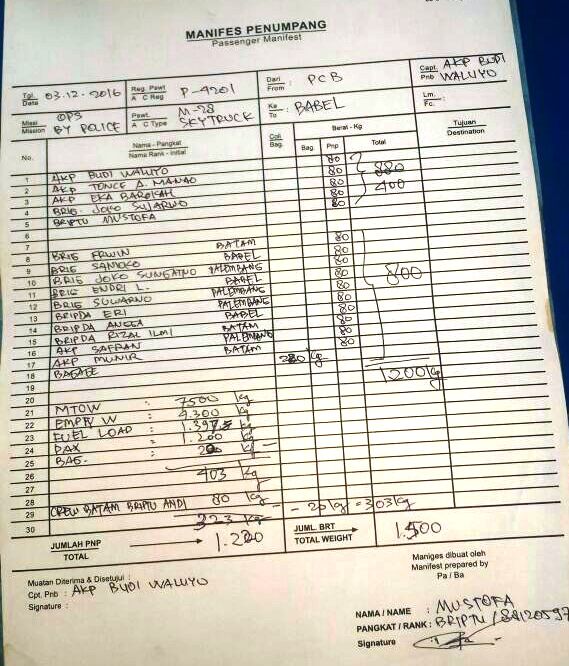 MANIFES PENUMPANG
Passenger Manifest
Tgl. Date 03.12.2016 Reg. Pswt A C Reg P-4201 Dari From : PCB Capt. Pnb AKP BUDI WALUYO
Misi Mission OPS BY POLICE Pswt. A C Type M-28 SKYTRUCK Ke To : BABEL Lm. : Fc. :
No. Nama - Pangkat Name Rank - Initial Coli Bag. Berat - Kg Bag. Pnp Total Tujuan Destination
1 AKP BUDI WALUYO 80
2 AKP TONCE A. MANAO 80
3 AKP EKA BAROKAH 80 400
4 BRIG. JOKO SUJARWO 80
5 BRIPTU MUSTOFA 80
6
7 BRIG ERWIN BATAM 80
8 BRIG SANTOKO BABEL 80
9 BRIG JOKO SUNGATNO PALEMBANG 80
10 BRIG ENDRI L. BABEL 80
11 BRIG SUWARNO PALEMBANG 80 800
12 BRIPDA ERI PALEMBANG 80
13 BRIPDA ANGGA BABEL 80
14 BRIPDA RIZAL ILMI BATAM 80
15 AKP SAFRAN PALEMBANG 80
16 AKP MUNIR BATAM 80
17 BAGAGE kg
18 1200 kg
19
20 MTOW : 7500 kg
21 EMPTY W : 4.300 kg
22 FUEL LOAD : kg
23 PAX : 1.200 kg
24 BAG. : kg
25
26 403 kg
27
28 CREW BATAM BRIPTU ANDI 80 kg
29 323 kg - 20 kg = 303 kg
30
JUMLAH PNP TOTAL JUML. BRT TOTAL WEIGHT
Muatan Diterima & Disetujui :
Cpt. Pnb : AKP BUDI WALUYO
Signature :
Maniges dibuat oleh
Manifest prepared by
Pa / Ba
NAMA / NAME : MUSTOFA
PANGKAT / RANK : BRIPTU / 88120597
Signature :